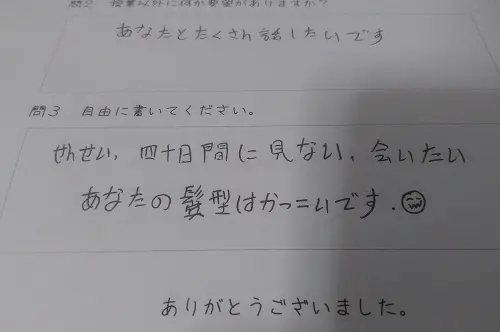 問2 授業以外に何か要望がありますか?
あなたとたくさん話したいです
問3 自由に書いてください。
せんせい, 四十日間に見ない, 会いたい
あなたの髪型はかっこいです.
ありがとうございました。